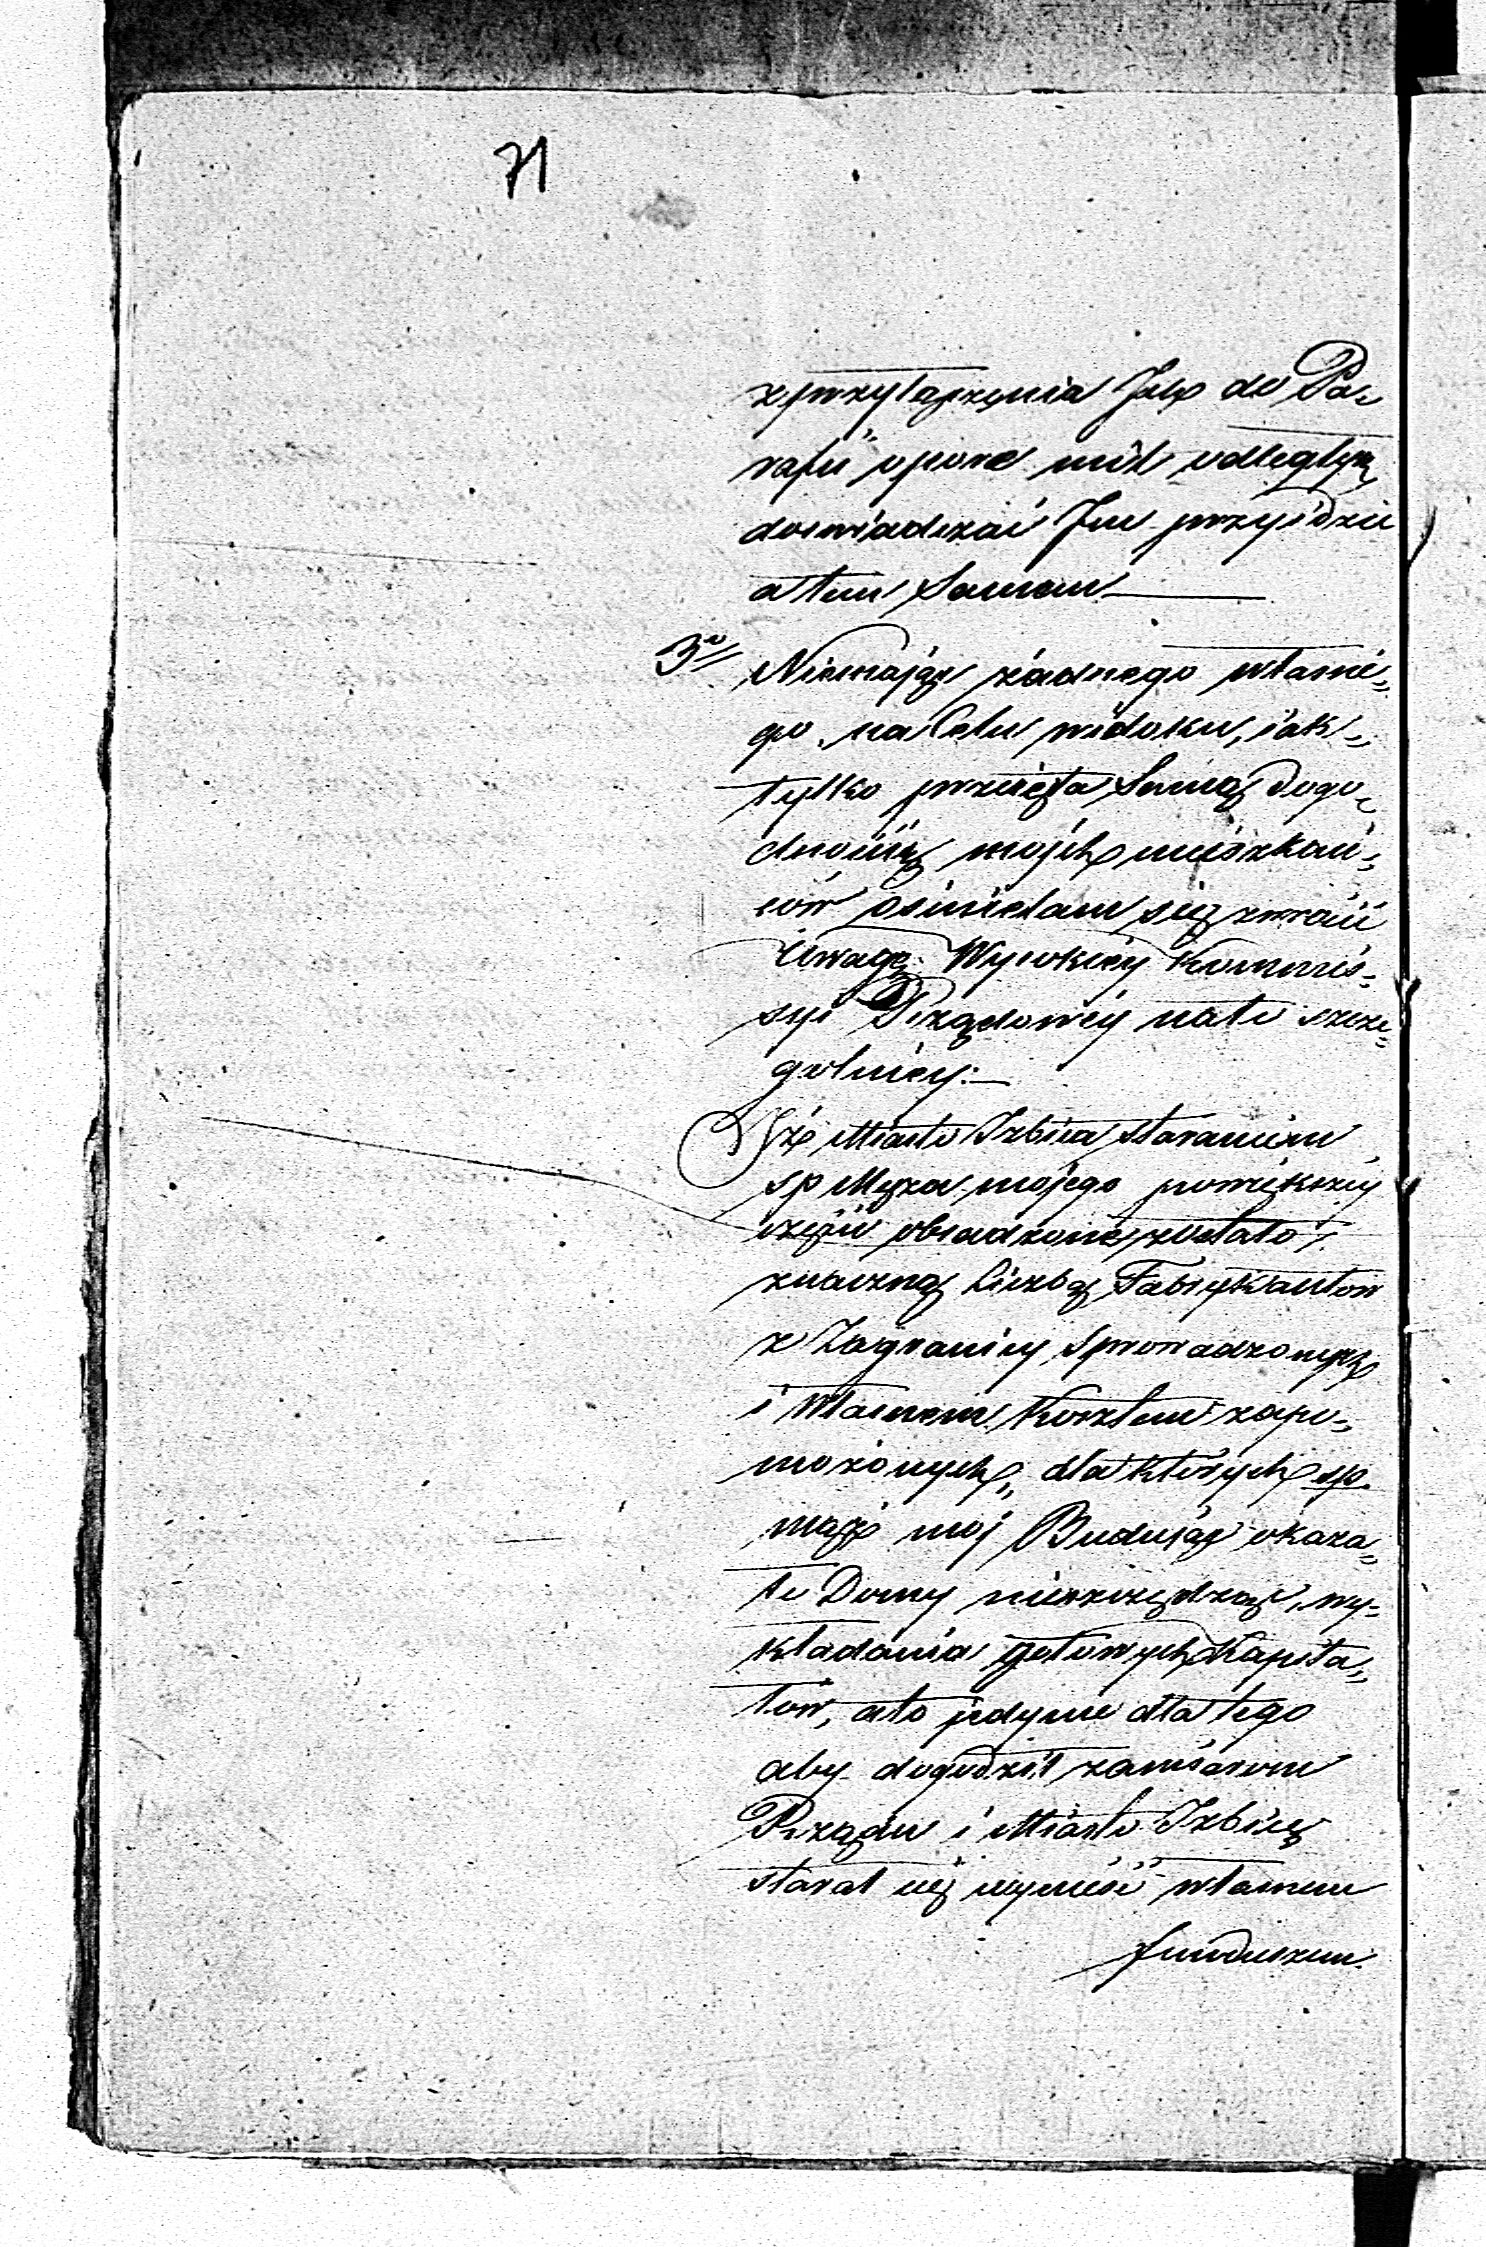 71
z przyłączenia Ich do Pa-
rafii o parę mil odległych
doswiadczać Im przyidzie
a tem Samem —
3o// Niemając żadnego własne-
go na Celu widoku, iak-
tylko przeięta Samą dogo-
dnością mojch mieszkań-
ców ośmielam się zwrócić
Uwagę Wysokiey Kommis-
syi Rządowéy na to szcze-
gulniey: —
Iż Miasto Izbica staraniem
sp Męża mojego powiększéy
części obsadzone zostało
znaczną Liczbą Fabrykantow
z Zagranicy sprowadzonych
i własnem Kosztem zapo-
możonych, dla których sp.
mąż mój Buduiąc okaza-
łe Domy nieszczędząc, wy-
kładania gotowych Kapita-
łów, a to jedynie dla tego
aby dogodził zamiarom
Rządu i Miasto Izbicę
starał się wynieść własnem
funduszem.